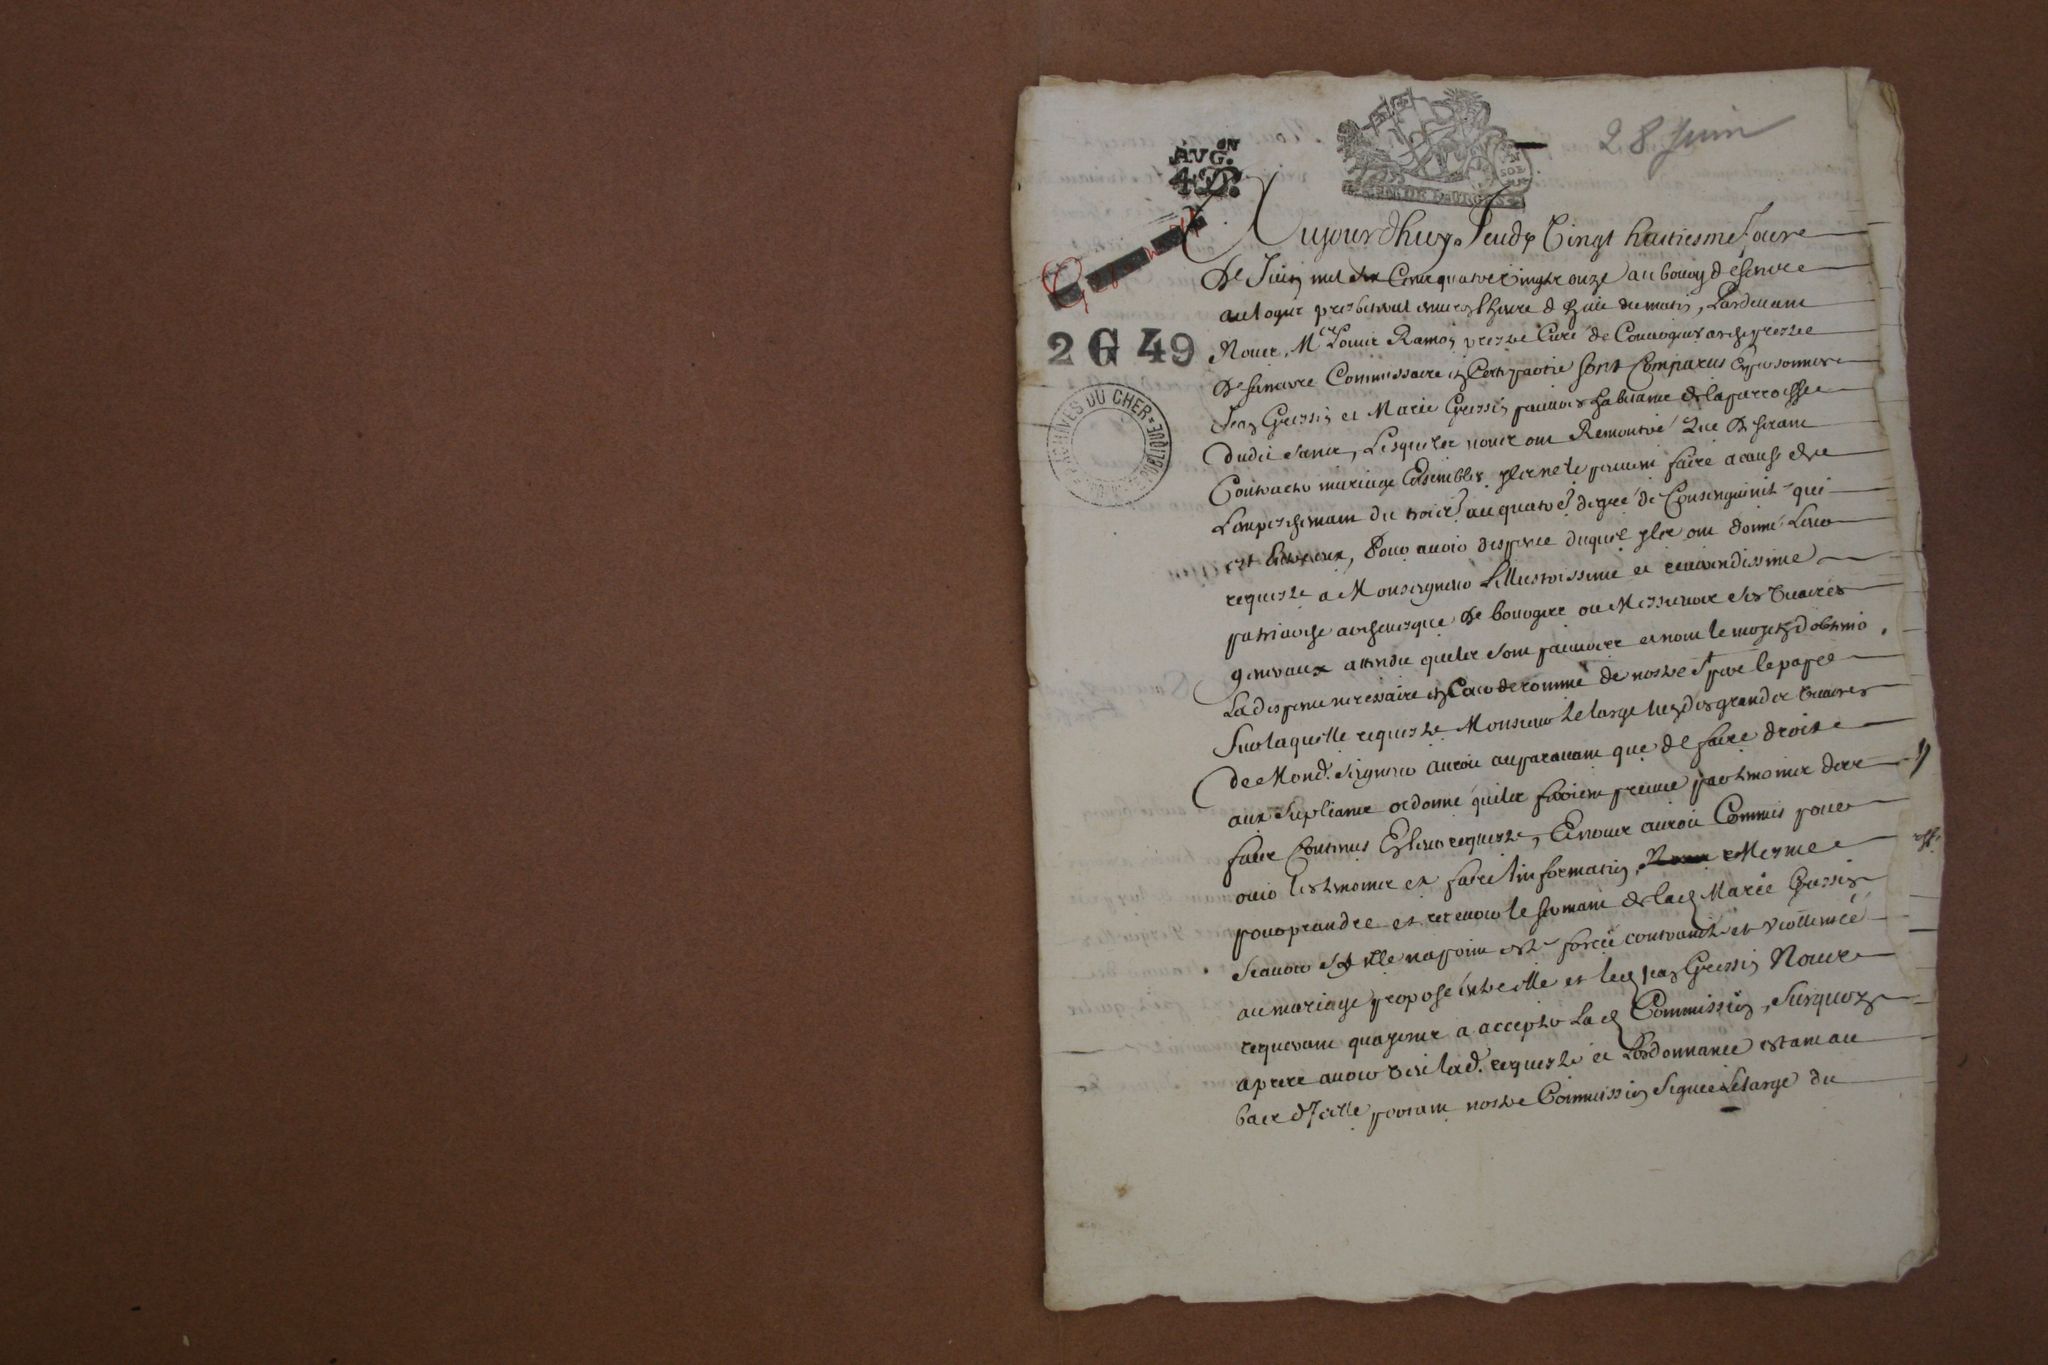 28 Juin
AVG.ON
4 D.
GEN. DE BOURGES
SOLS
2 G 49
ARCHIVES DU CHER
Aujourdhuy Jeudy Vingt huictiesme Jour
De Juin mil six Cent quatre vingts onze au bourg de
au logis presbiteral environ l'heure d huit du matin, Pardevant
Nous, Mre Louis Ramon prestre Curé de archiprestre
De Commissaire en Cette partie Sont Comparus En personnes
Jean Gressin et Marie Gressin pauvres habitants de la parroisse
Dudit Lesquels nous ont Remontré Que Desirant
Contracter mariage Ensembles ils ne le peuvent faire a cause de
L'empeschement du trois au quatre degré de Consanguinité qui
est Entre eux, Pour avoir dispense duquel ils ont donné Leur
requeste a Monseigneur L'Illustrissime et reverendissime
patriarche archevesque De bourges ou Messieurs ses Vicaires
generaux attendu quils sont pauvres et nont le moyen d'obtenir
La dispense necessaire en Cour de romme de nostre St pere le pape
Sur laquelle requeste Monsieur Lelarge lun des grands Vicaires
De Mond. Seigneur auroit auparavant que de faire droit
aux Suplians ordonné quils feroient preuve par tesmoins des
faits Contenus En leur requeste, Et nous auroit Commis pour
ouir les tesmoins et faire l'information, Mesme
pour prandre et recevoir le serment de lad Marie Gressin
Scavoir Sy elle na point esté forcée contrainte et viollentée
au mariage proposé entre elle et led Jean Gressin Nous
requerant quayons a accepter Lad Commission, Surquoy
apres avoir veu lad. requeste et L'ordonnance estant au
bas D'icelle portant nostre Commission Signée Lelarge du